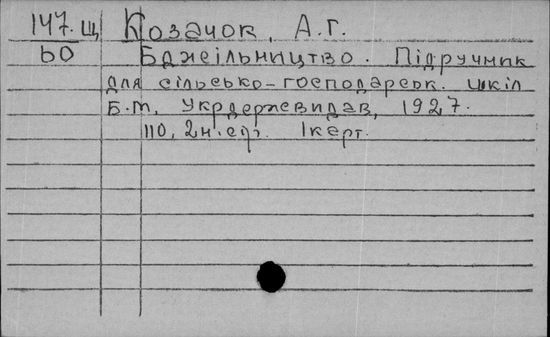 147.Щ Козачок, А.Г.
60 Бджільництво. Підручник
для сільсько-господарськ. шкіл
Б.М. Укрдержвидав, 1927.
110, 2н. с.